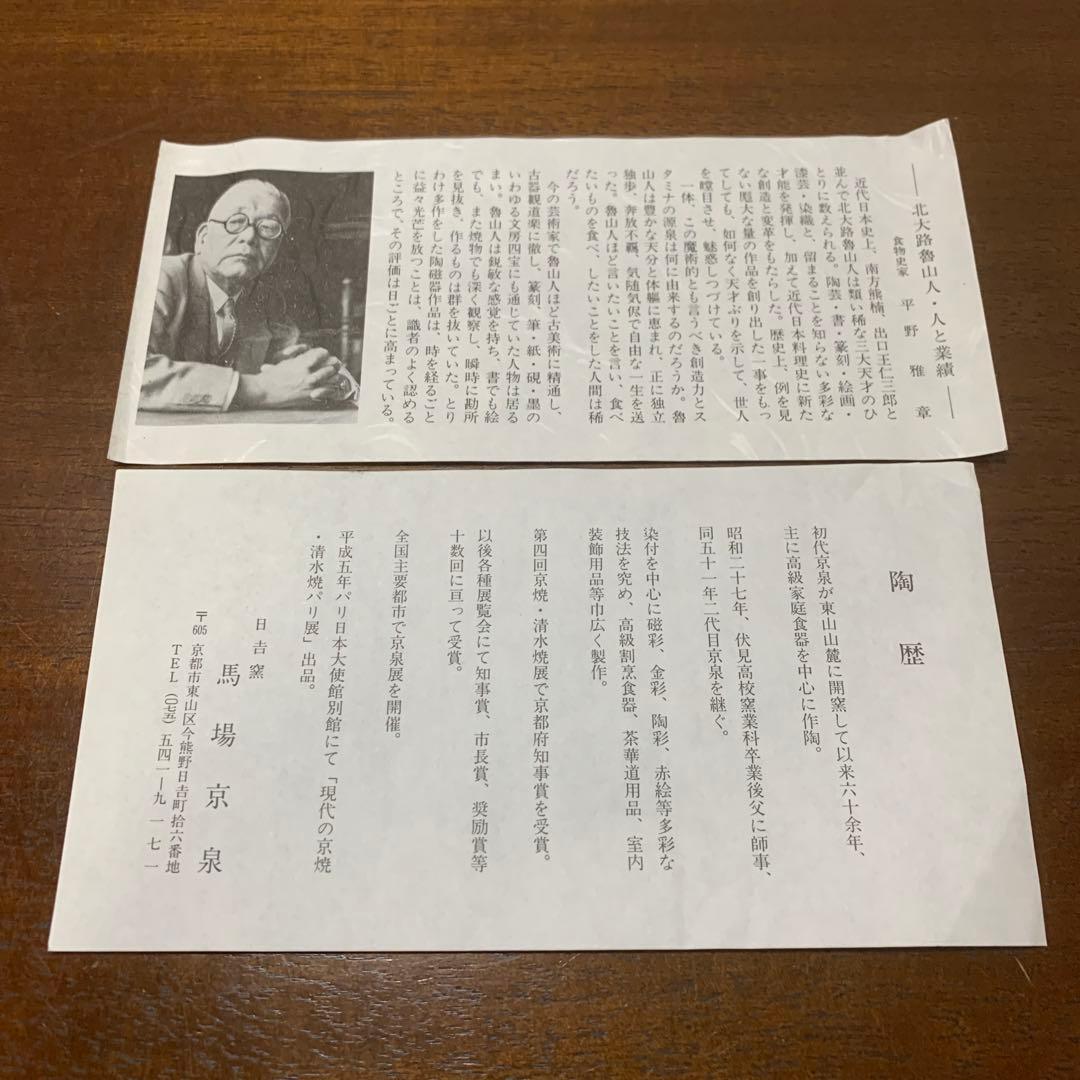 ―― 北大路魯山人・人と業績 ――
食物史家　平野雅章
近代日本史上、南方熊楠、出口王仁三郎と
並んで北大路魯山人は類い稀な三大天才のひ
とりに数えられる。陶芸・書・篆刻・絵画・
漆芸・染織と、留まることを知らない多彩な
才能を発揮し、加えて近代日本料理史に新た
な創造と変革をもたらした。歴史上、例を見
ない厖大な量の作品を創り出した一事をもっ
てしても、如何なく天才ぶりを示して、世人
を瞠目させ、魅惑しつづけている。
一体、この魔術的とも言うべき創造力とス
タミナの源泉は何に由来するのだろうか。魯
山人は豊かな天分と体軀に恵まれ、正に独立
独歩、奔放不羈、気随気侭で自由な一生を送
った。魯山人ほど言いたいことを言い、食べ
たいものを食べ、したいことをした人間は稀
だろう。
今の芸術家で魯山人ほど古美術に精通し、
古器観道楽に徹し、篆刻、筆・紙・硯・墨の
いわゆる文房四宝にも通じていた人物は居る
まい。魯山人は鋭敏な感覚を持ち、書でも絵
でも、また焼物でも深く観察し、瞬時に勘所
を見抜き、作るものは群を抜いていた。とり
わけ多作をした陶磁器作品は、時を経るごと
に益々光芒を放つことは、識者のよく認める
ところで、その評価は日ごとに高まっている。
陶歴
初代京泉が東山山麓に開窯して以来六十余年、
主に高級家庭食器を中心に作陶。
昭和二十七年、伏見高校窯業科卒業後父に師事、
同五十一年二代目京泉を継ぐ。
染付を中心に磁彩、金彩、陶彩、赤絵等多彩な
技法を究め、高級割烹食器、茶華道用品、室内
装飾用品等巾広く製作。
第四回京焼・清水焼展で京都府知事賞を受賞。
以後各種展覧会にて知事賞、市長賞、奨励賞等
十数回に亘って受賞。
全国主要都市で京泉展を開催。
平成五年パリ日本大使館別館にて「現代の京焼
・清水焼パリ展」出品。
日吉窯
馬場京泉
〒605 京都市東山区今熊野日吉町拾六番地
TEL（〇七五）五四一―九一七一